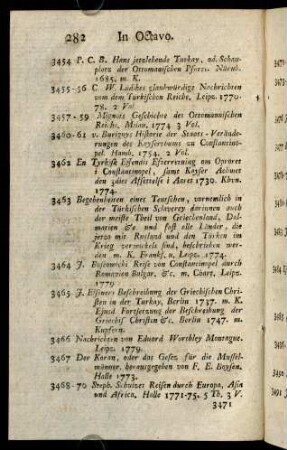 282 In Octavo.
3454 P. C. B. Hans jetzlebende Turkay, od. Schau-
platz der Ottomanischen Pforte. Nürnb.
1685. m. K.
3455-56 C. W. Lüdekes glaubwürdige Nachrichten
von dem Türkischen Reiche, Leipz. 1770-
78. 2 Vol
3457-59 Mignots Geschichte des Ottomanischen
Reichs, Mitau, 1774 3 Vol.
3460-61 v. Burigny Historie der Staats-Verände-
rungen des Kayserthums zu Constantino-
pel. Hamb. 1754. 2 Vol.
3462 En Tyrkisk Effendis Efterretning om Oprøret
i Constantinopel, samt Kayser Achmet
den 3dies Affættelse i Aaret 1730. Kbvn.
1774.
3463 Begebenheiten eines Teutschen, vornemlich in
der Türkischen Sclaverey darinnen auch
der meiste Theil von Griechenland, Dal-
matien &c und fast alle Länder, die
jetzo mit Rusland und den Türken im
Krieg verwickelt sind, beschrieben wer-
den m. K. Frankf. u. Leipz. 1774.
3464 J. Boscowichs Reise von Constantinopel durch
Romanien Bulgar. &c. m. Chart, Leipz.
1779
3465 J. Elssners Beschreibung der Griechischen Chri-
sten in der Turkay, Berlin 1737. m. K.
Ejusd Fortsetzung der Beschreibung der
Griechis Christen &c. Berlin 1747. m.
Kupfern.
3466 Nachrichten von Eduard Worthley Montague.
Leipz. 1779.
3467 Der Koran, oder das Gesez für die Mussel-
männer, herausgegeben von F. E. Boysen.
Halle 1773.
3468-70 Steph. Schulzes Reisen durch Europa, Asia
und Africa, Halle 1771-75. 5 Th. 3 V.
3471